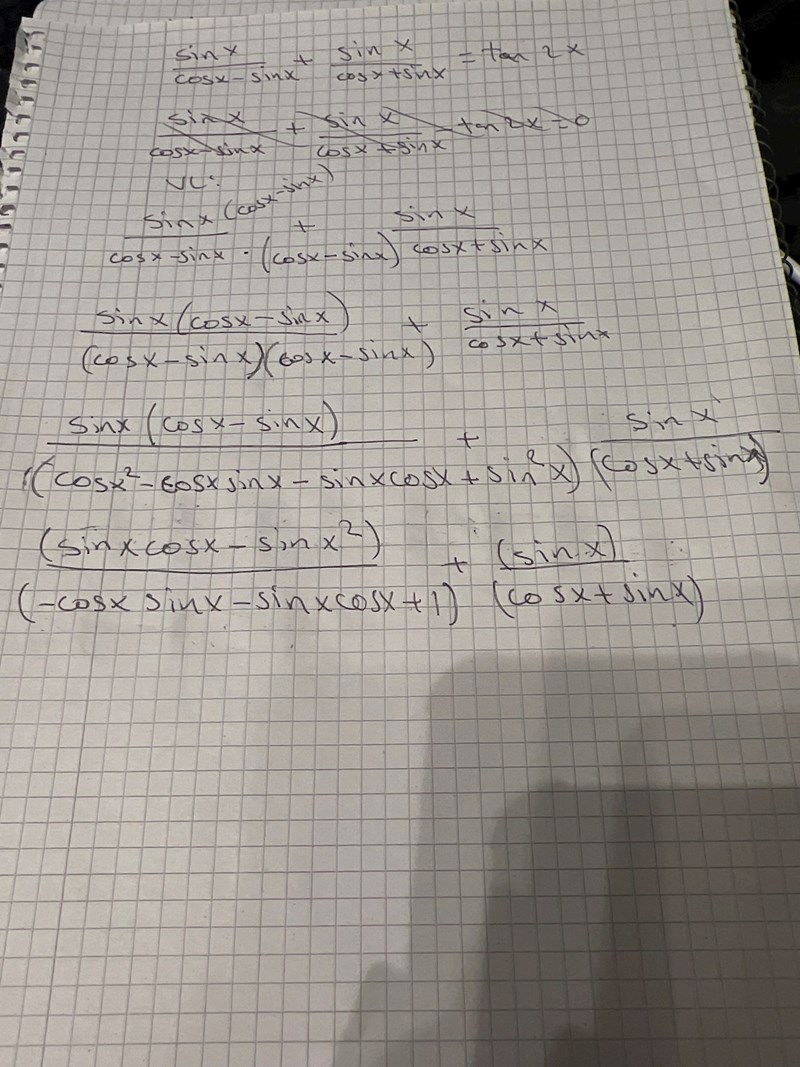 sin x / (cos x - sin x) + sin x / (cos x + sin x) = tan 2x
sin x / (cos x - sin x) + sin x / (cos x + sin x) - tan 2x = 0
VL:
sin x (cos x - sin x) / (cos x - sin x · (cos x - sin x)) + sin x / (cos x + sin x)
sin x (cos x - sin x) / ((cos x - sin x)(cos x - sin x)) + sin x / (cos x + sin x)
sin x (cos x - sin x) / (cos x² - cos x sin x - sin x cos x + sin² x) + sin x / (cos x + sin x)
(sin x cos x - sin x²) / (-cos x sin x - sin x cos x + 1) + (sin x) / (cos x + sin x)